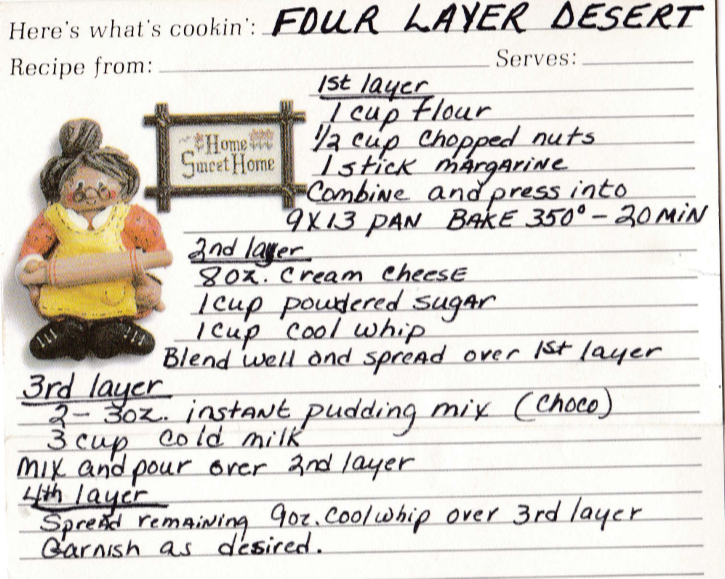 Here's what's cookin': FOUR LAYER DESERT
Recipe from: Serves:
1st layer
1 cup flour
1/2 cup chopped nuts
1 stick margarine
Home
Sweet Home
Combine and press into
9X13 PAN BAKE 350° - 20 MIN
2nd layer
8oz. cream cheese
1 cup powdered sugar
1 cup cool whip
Blend well and spread over 1st layer
3rd layer
2- 3oz. instant pudding mix (choco)
3 cup cold milk
Mix and pour over 2nd layer
4th layer
Spread remaining 9oz. cool whip over 3rd layer
Garnish as desired.